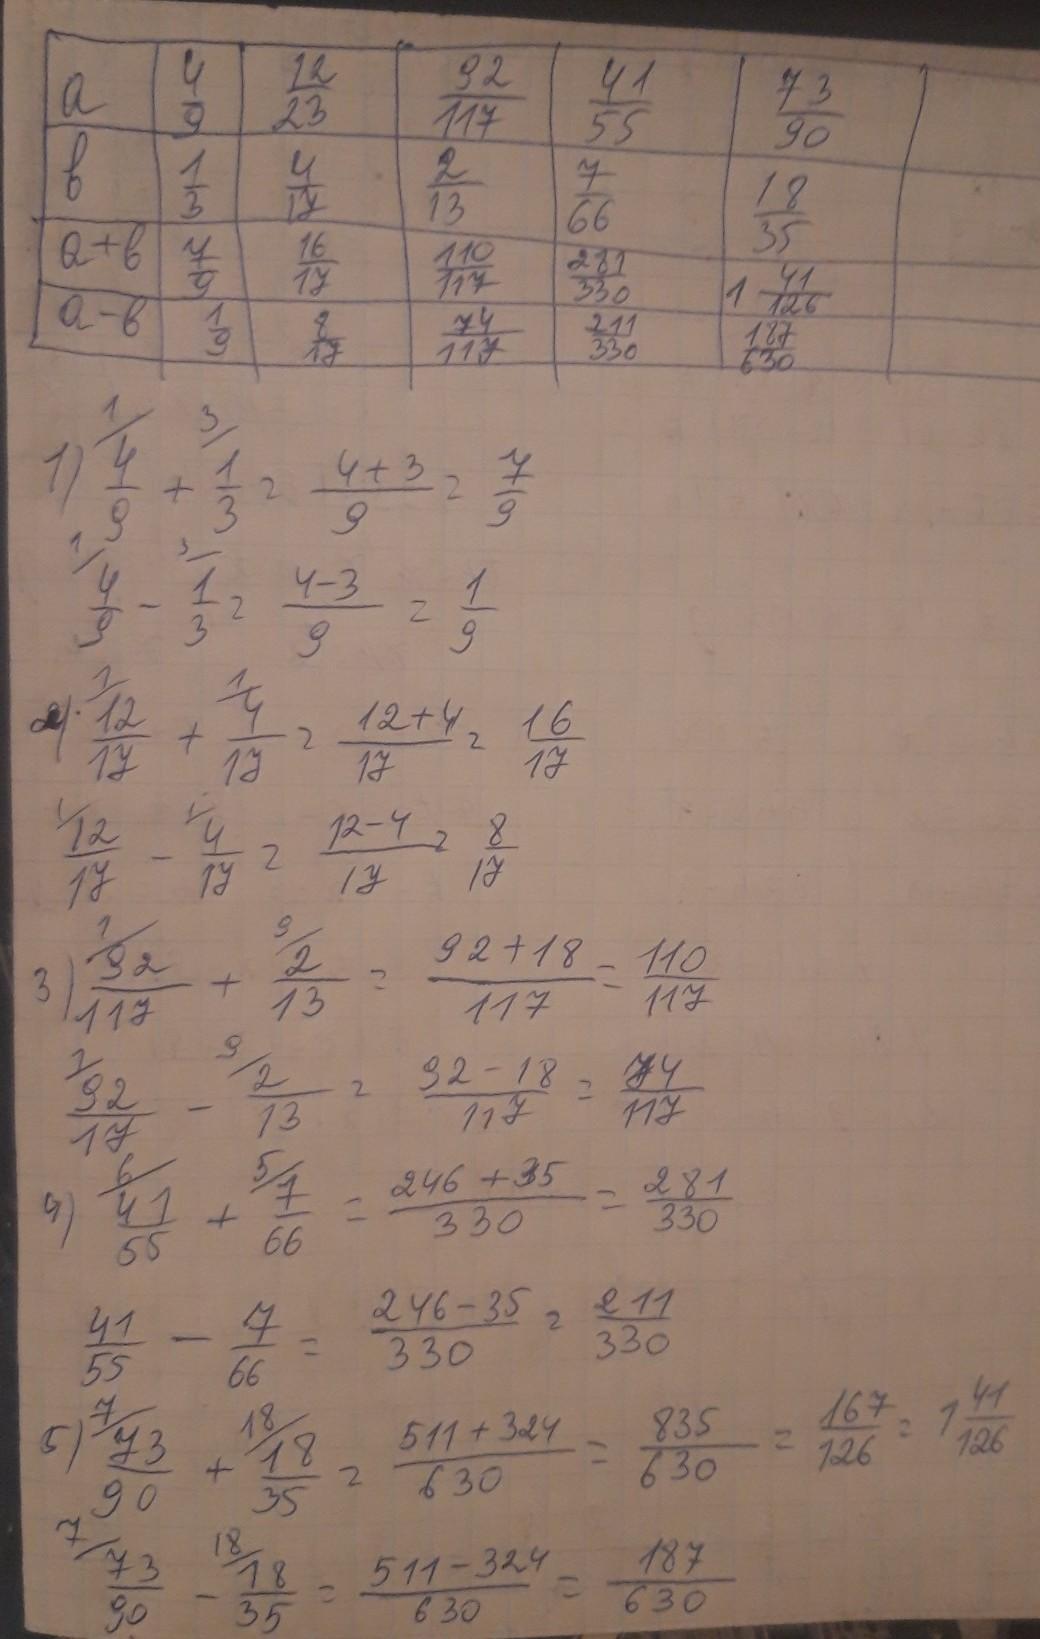 a 4/9 12/23 92/117 41/55 73/90
b 1/3 4/17 2/13 7/66 18/35
a+b 7/9 16/17 110/117 281/330 1 41/126
a-b 1/9 8/17 74/117 211/330 187/630
1) 1/ 4/9 + 3/ 1/3 = (4+3)/9 = 7/9
1/ 4/9 - 3/ 1/3 = (4-3)/9 = 1/9
2) 1/ 12/17 + 1/ 4/17 = (12+4)/17 = 16/17
1/ 12/17 - 1/ 4/17 = (12-4)/17 = 8/17
3) 1/ 92/117 + 9/ 2/13 = (92+18)/117 = 110/117
1/ 92/17 - 9/ 2/13 = (92-18)/117 = 74/117
4) 6/ 41/55 + 5/ 7/66 = (246+35)/330 = 281/330
41/55 - 7/66 = (246-35)/330 = 211/330
5) 7/ 73/90 + 18/ 18/35 = (511+324)/630 = 835/630 = 167/126 = 1 41/126
7/ 73/90 - 18/ 18/35 = (511-324)/630 = 187/630